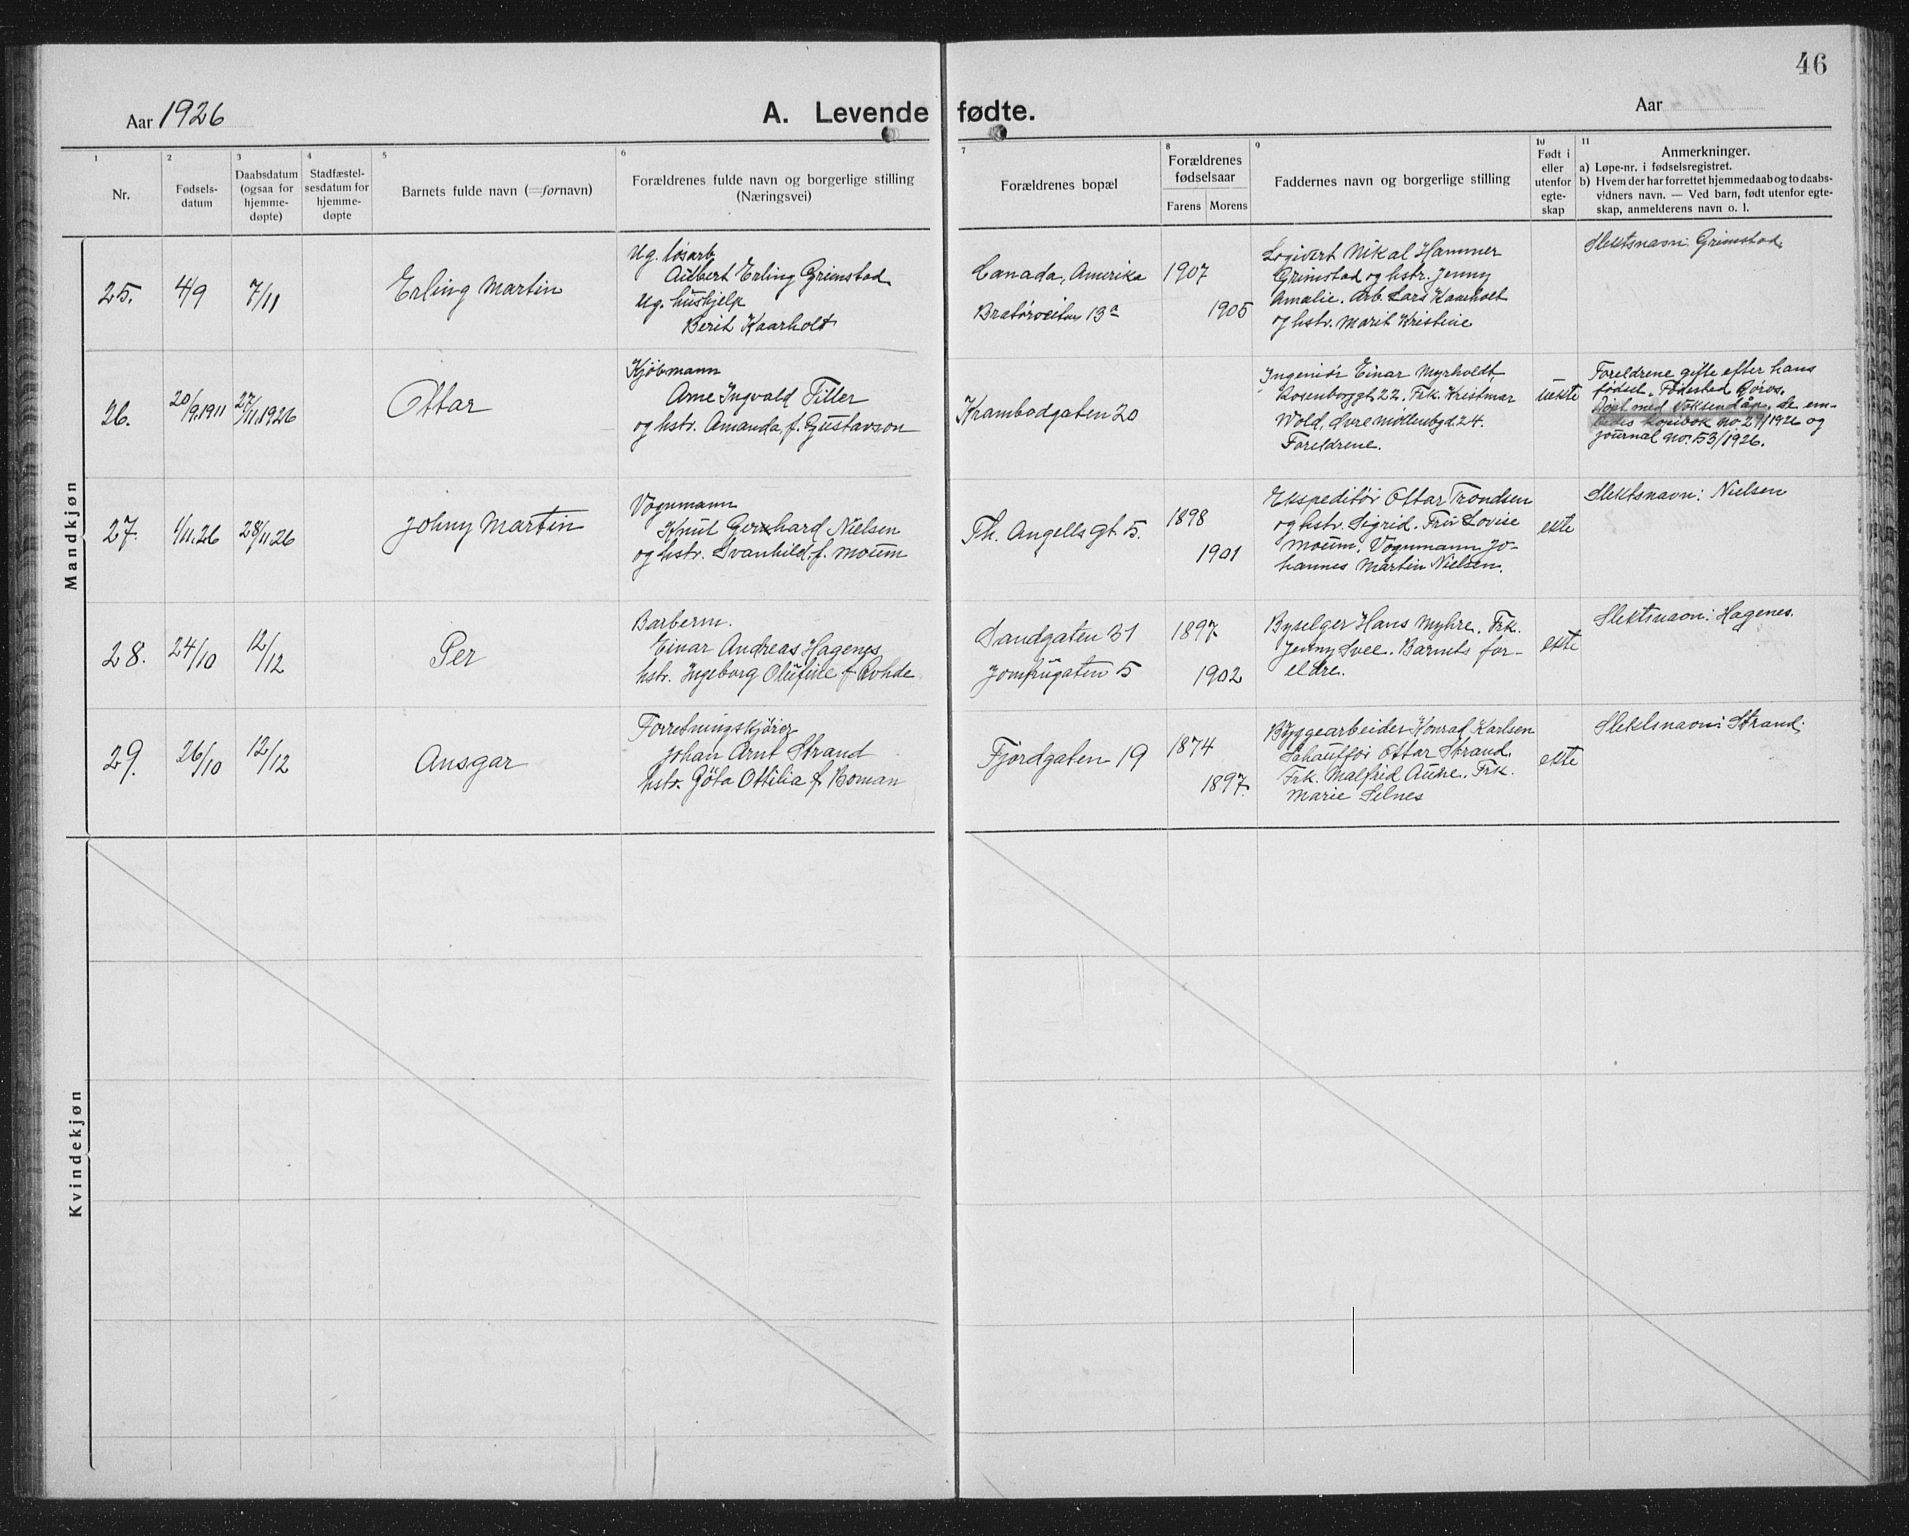 46
Aar 1926
A. Levende fødte.
Aar
1
2
3
4
5
6
7
8
9
10
11
Nr.
Fødsels-
datum
Daabsdatum
(ogsaa for
hjemme-
døpte)
Stadfæstel-
sesdatum for
hjemme-
døpte
Barnets fulde navn (=fornavn)
Forældrenes fulde navn og borgerlige stilling
(Næringsvei)
Forældrenes bopæl
Forældrenes
fødselsaar
Farens Morens
Faddernes navn og borgerlige stilling
Født i
eller
utenfor
egte-
skap
Anmerkninger.
a) Løpe-nr. i fødselsregistret.
b) Hvem der har forrettet hjemmedaab og to daabs-
vidners navn. — Ved barn, født utenfor egte-
skap, anmelderens navn o. l.
Mandkjøn
25.
4/9
7/11
Erling Martin
Ug. løsarb.
Erling Grimstad
Ug. hushjelp
Berit Kaarholt
Canada, Amerika
Bratørveiten 13a
1907
1905
Nikal Hammer
Grimstad og hstr. Jenny
Amalie. Arb. Lars Kaarholt
og hstr. Marit Kristine
Slektsnavn: Grimstad.
26.
20/9.1911
27/11.1926
Ottar
Kjøbmann
Arne Ingvald Tiller
og hstr. Amanda f. Gustavson
Krambodgaten 20
Ingeniør Einar Myrholdt,
Rosenborggt 22. Frk. Kristmar
Wold, Øvre Møllenbgd. 24.
Foreldrene.
uekte
Foreldrene gifte efter hans
fødsel. Fødested Røros.
Døpt med voksendåp. Se em-
bedes kopibok no. 29/1926 og
journal no. 53/1926.
27.
1/11.26
28/11 26
Johny Martin
Vognmann
Knut Gerhard Nielsen
og hstr. Svanhild f. Moum
Th. Angells gt. 5.
1898
1901
Ekspeditør Ottar Trondsen
og hstr. Sigrid. Fru Lovise
Moum. Vognmann Jo-
hannes Martin Nielsen.
ekte
Slektsnavn: Nielsen
28.
24/10
12/12
Per
Barberm.
Einar Andreas Hagenes
hstr. Ingeborg Olufine f. Rohde
Sandgaten 31
Jomfrugaten 5
1897
1902
Byselger Hans Myhre. Frk.
Jenny Svee. Barnets for-
eldre.
ekte
Slektsnavn: Hagenes.
29.
26/10
12/12
Ansgar
Forretningskjører
Johan Arnt Strand
hstr. Göta Ottilia f. Boman
Fjordgaten 19
1874
1897.
Byggearbeider Konrad Karlsen
Schaufför Ottar Strand.
Frk. Malfrid Aune. Frk.
Marie Selnes
ekte
Slektsnavn: Strand.
Kvindekjøn